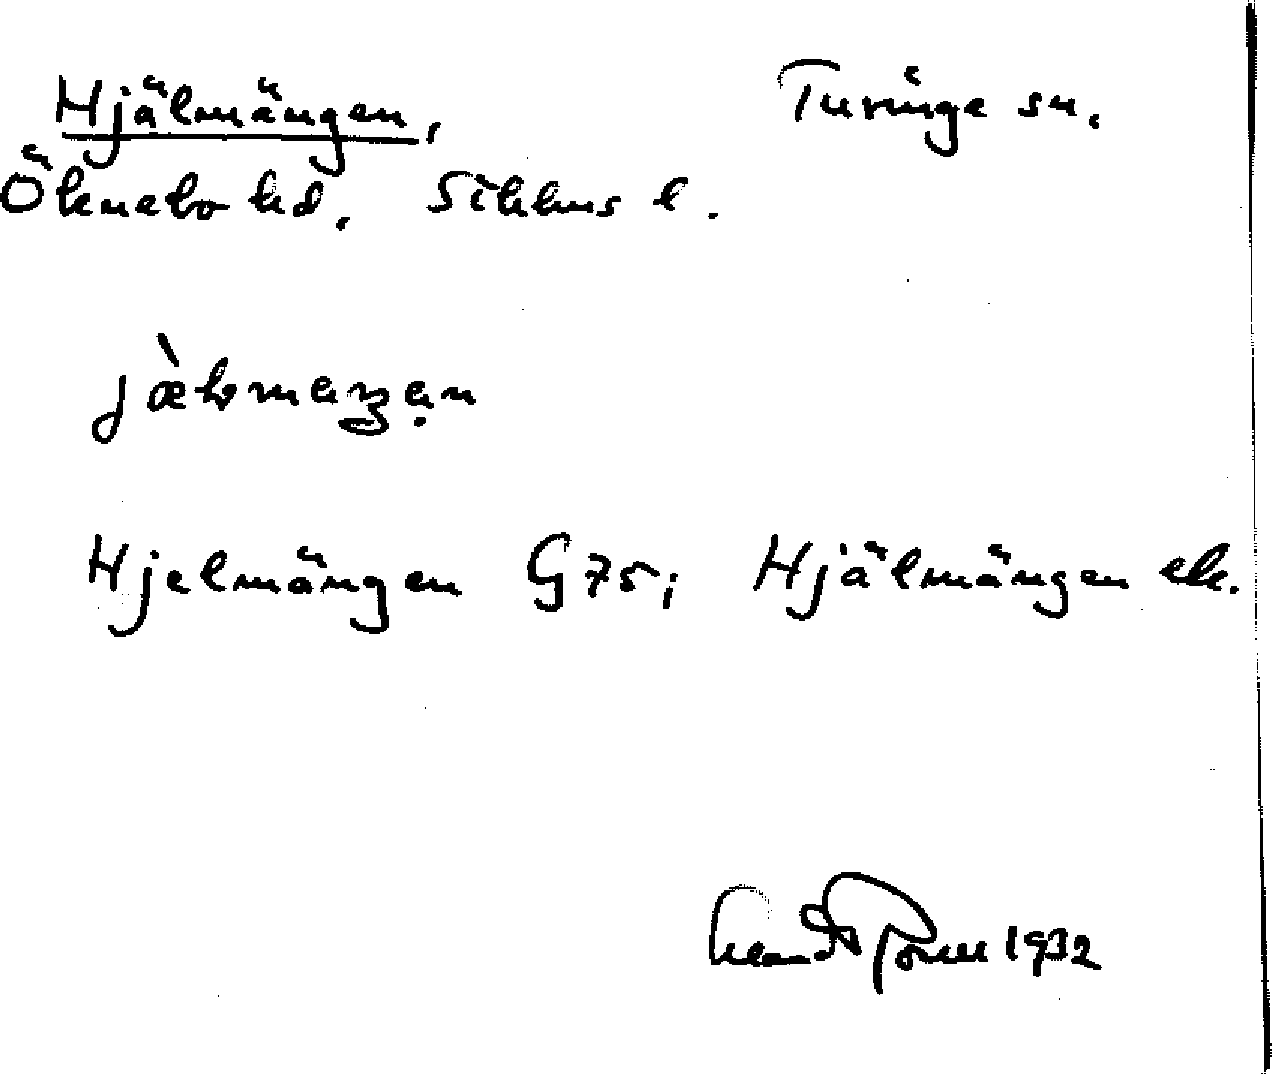 Hjälmängen, Turinge sn.
Öknebo hd. Sthlms l.
Hjelmängen G75; Hjälmängen ek.
1932